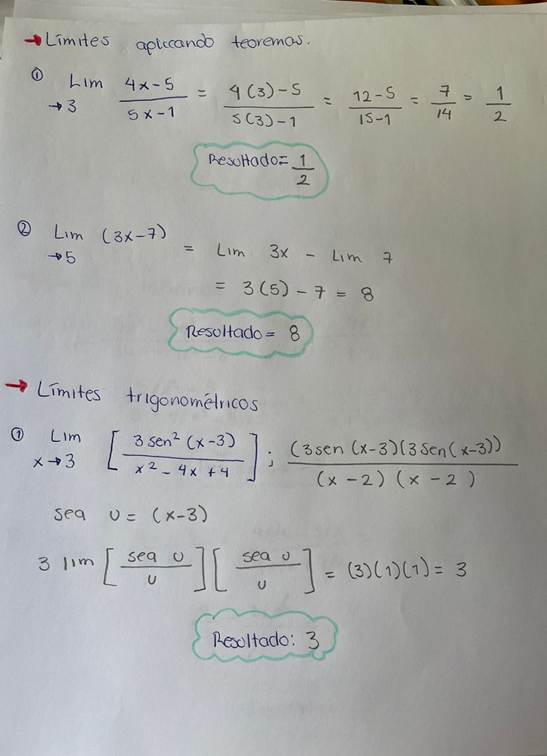 → Límites aplicando teoremas.
① Lim →3 4x-5 / 5x-1 = 4(3)-5 / 5(3)-1 = 12-5 / 15-1 = 7/14 = 1/2
Resultado= 1/2
② Lim →5 (3x-7) = Lim 3x - Lim 7
= 3(5) - 7 = 8
Resultado= 8
→ Límites trigonométricos
① Lim x→3 [3 sen² (x-3) / x² - 4x + 4] ; (3sen (x-3)(3sen(x-3)) / (x-2) (x-2)
sea u = (x-3)
3 lim [sea u / u] [sea u / u] = (3)(1)(1) = 3
Resultado: 3